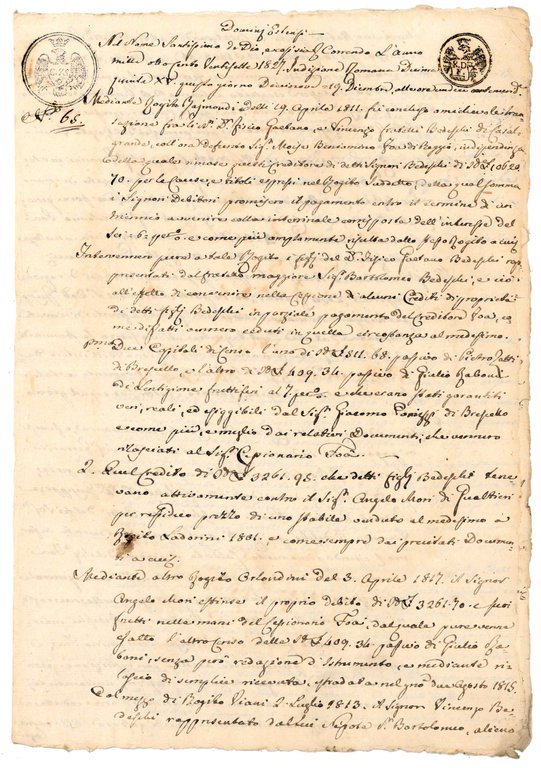 Dominj Estensi
Nel Nome Santissimo di Dio, così sia. Correndo l'Anno
mille otto cento ventisette 1827. Indizione Romana Decima
quinta XV questo giorno Diecinove 19. Dicembre
N.° 68.
Mediante Rogito Raimondi delli 19. Aprile 1811. fu conclusa amichevole
zione fra li Sig.ri D.r Fisico Gaetano, e Vincenzo Fratelli Bedeschi di Casal-
grande, coll'ora defunto Sig.r Moisè Beniamino Foà di Reggio, in dipendenza
della quale rimase questi Creditore di detti Signori Bedeschi di 10620.
70. per le Cause, e titoli espressi nel Rogito suddetto, della qual somma
i Signori Debitori promisero il pagamento entro il termine di un
a venire colla corrisposta dell'interesse del
sei 6 per c.o e come più ampiamente risulta dallo stesso Rogito a cui
Intervennero pure a tale Rogito i figlj del D.r Fisico Gaetano Bedeschi rap-
presentati dal fratello maggiore Sig.r Bartolomeo Bedeschi, e ciò
all'effetto di convenire nella Cessione di alcuni Crediti di proprietà
di detti figlj Bedeschi in parziale pagamento del Creditore Foà, co-
me difatti vennero ceduti in quella circostanza al medesimo.
p.mo Due Capitali di Censo, l'uno di 511. 68. passivo di Pietro
di Brescello, e l'altro di 409. 34. passivo di Giulio Zaboni
di Lentigione fruttiferi al 7 per c.o e doverano stati garantiti
veri, reali, ed esiggibili dal Sig.r Giacomo di Brescello
e come più, e meglio dai relativi Documenti, che vennero
rilasciati al Sig.r Cessionario Foà.
2. Quel Credito di 3261. 95. che detti figlj Bedeschi tene-
vano attivamente contro il Sig.r Angelo Mori di Gualtieri
per residuo prezzo di uno stabile venduto al medesimo a
Rogito 1801. e come sempre dai precitati Documen-
ti a cui
Mediante altro Rogito Orlandini del 3. Aprile 1817. il Signor
Angelo Mori estinse il proprio debito di 3261. 70. e suoi
frutti nelle mani del Cessionario Foà, dal quale pure venne
esatto l'altro Censo delle 409. 34. passivo di Giulio Za-
boni, senza però redazione d'Istrumento, e mediante ri-
lascio di semplice ricevuta, sfradata nel gno due Agosto 1815.
Col mezzo di Rogito Viani 2. Luglio 1813. il Signor Vincenzo Be-
deschi rappresentato dal di lui Nipote S.r Bartolomeo, alienò